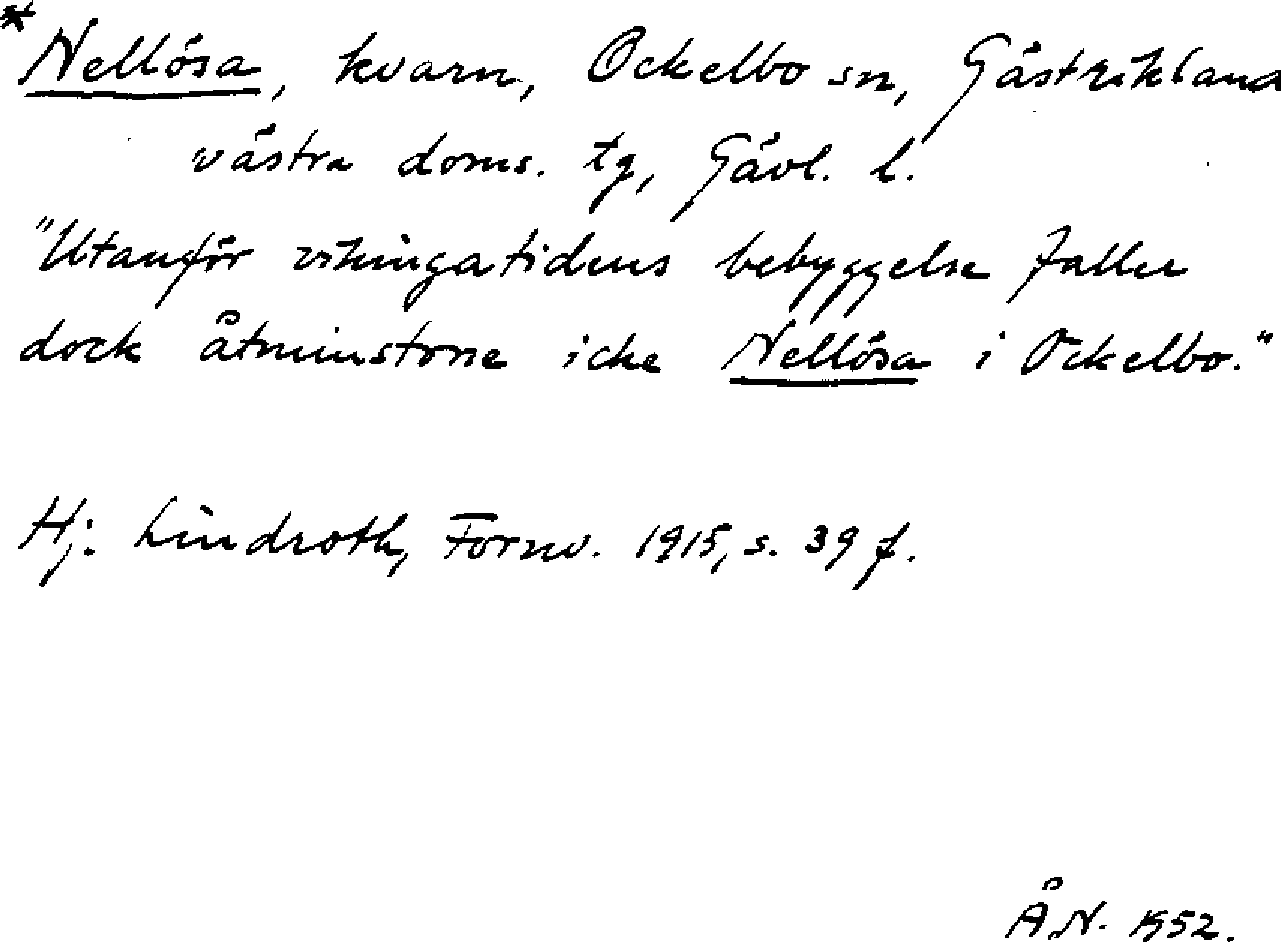 * Nellösa, kvarn, Ockelbo sn, Gästriklands
västra doms. tg, Gävl. l.
"Utanför vikingatidens bebyggelse faller
dock åtminstone icke Nellösa i Ockelbo."
Hj. Lindroth, Fornv. 1915, s. 39 f.
Å.N. 1952.